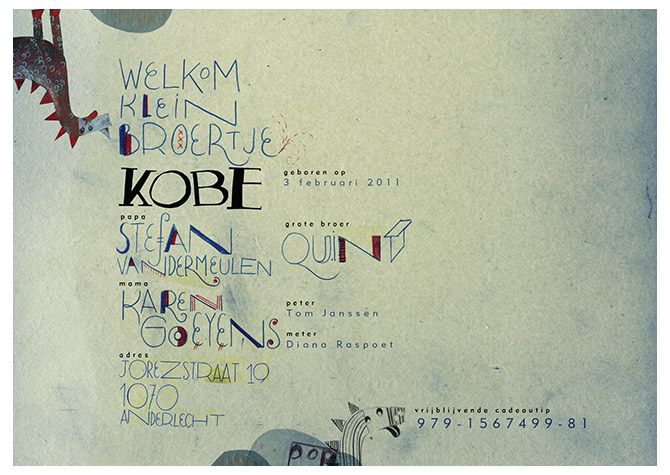 WELKOM
KLEIN
BROERTJE
KOBE
geboren op
3 februari 2011
papa
STEFAN
VANDERMEULEN
grote broer
QUINT
mama
KAREN
GOEYENS
peter
Tom Janssen
meter
Diana Raspoet
adres
JOREZSTRAAT 19
1070
ANDERLECHT
vrijblijvende cadeautip
979-1567499-81